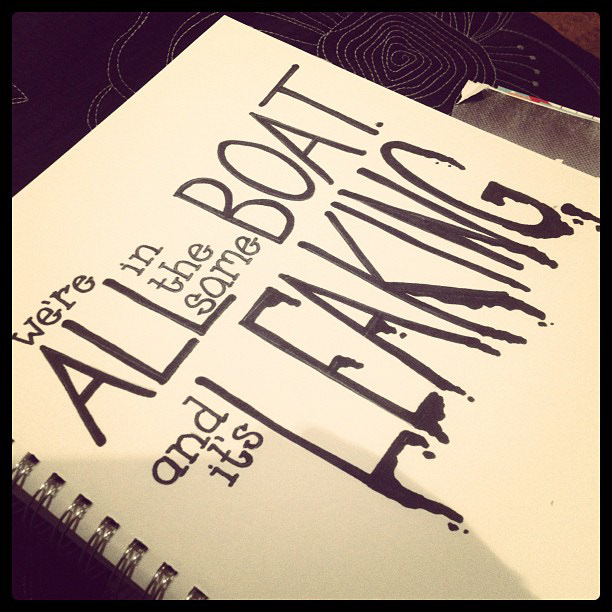 we're ALL in the same BOAT.
and it's LEAKING!